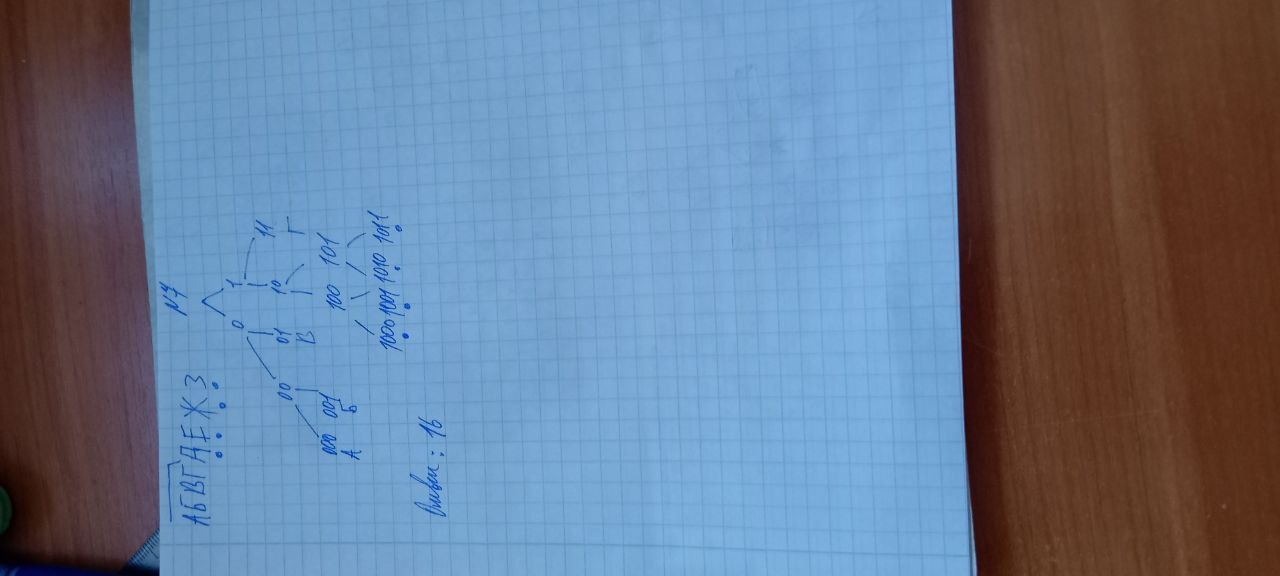 АБВГДЕЖЗ
№7
0 1
00 01 10 11
В Г
000 001 100 101
А Б
1000 1001 1010 1011
Ответ: 16